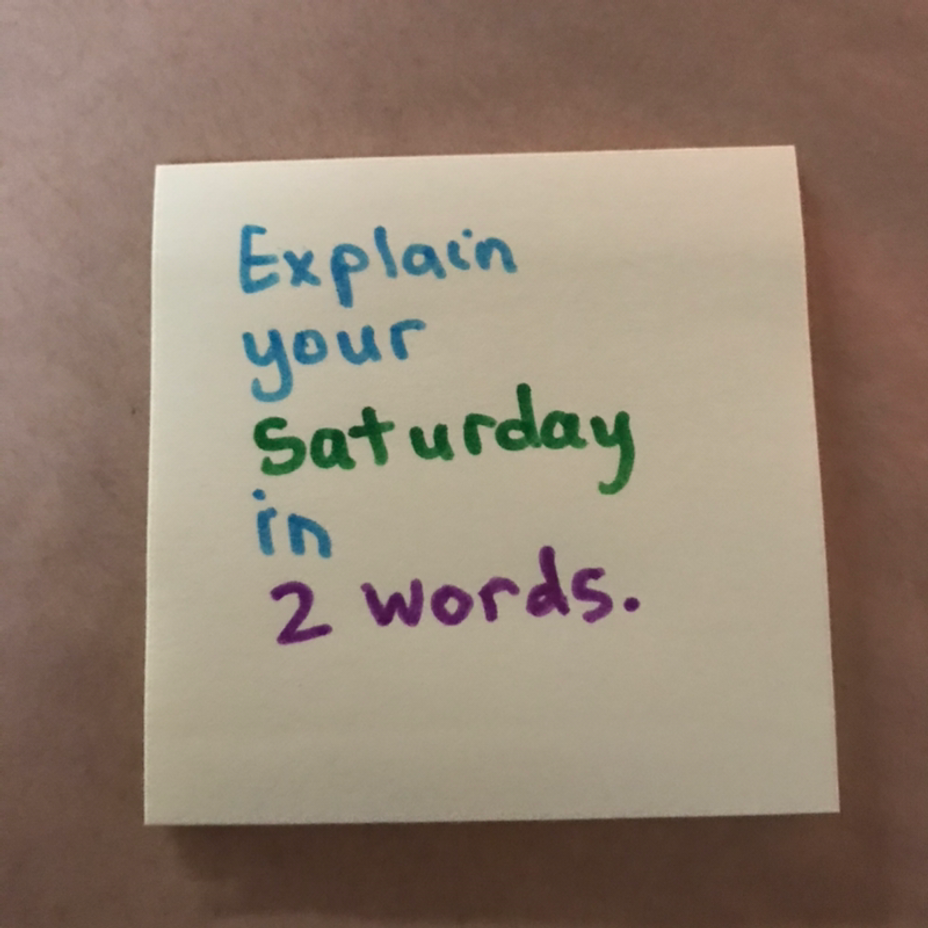 Explain
your
Saturday
in
2 words.